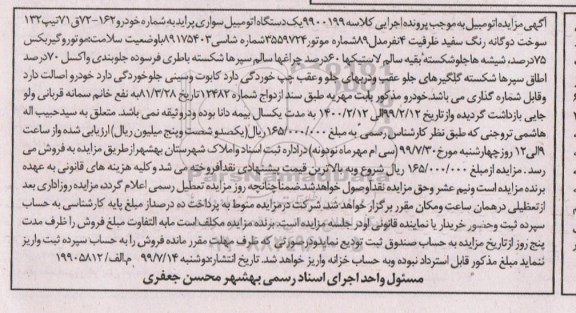 آگهی مزایده اتومبیل به موجب پرونده اجرایی کلاسه ۹۹۰۰۱۹۹ یک دستگاه اتومبیل سواری پراید به شماره خودرو ۱۶۲-۷۲ ق ۷۱ تیپ ۱۳۲
سوخت دوگانه رنگ سفید ظرفیت ۴ نفر مدل ۸۹ شماره موتور ۳۵۵۹۷۲۴ شماره شاسی ۸۹۱۷۵۴۰۳ با وضعیت سلامت موتور و گیربکس
۷۵ درصد، شیشه ها جلو شکسته بقیه سالم لاستیکها ۶۰ درصد چراغها سالم سپرها شکسته باطری فرسوده جلوبندی و اکسل ۷۰ درصد
اطاق سپرها شکسته گلگیرهای جلو عقب و دربهای جلو و عقب چپ خوردگی دارد کاپوت و سینی جلو خوردگی دارد خودرو اصالت دارد
و قابل شماره گذاری می باشد. خودرو مذکور بابت مهر به طبق سند ازدواج شماره ۱۲۴۸۲ تاریخ ۸۱/۳/۲۸ به نفع خانم سمانه قربانی ولو
جایی بازداشت گردیده و از تاریخ ۹۹/۲/۱۲ الی ۱۴۰۰/۲/۱۲ به مدت یکسال بیمه دانا بوده و در وثیقه نمی باشد. متعلق به سید حبیب اله
هاشمی تروجنی که طبق نظر کارشناس رسمی به مبلغ ۱۶۵/۰۰۰/۰۰۰ ریال (یکصد و شصت و پنج میلیون ریال) ارزیابی شده و از ساعت
۹ الی ۱۲ روز چهارشنبه مورخ ۹۹/۷/۳۰ (سی ام مهر ماه نود و نه) در اداره ثبت اسناد و املاک شهرستان بهشهر از طریق مزایده به فروش می
رسد. مزایده از مبلغ ۱۶۵/۰۰۰/۰۰۰ ریال شروع و به بالاترین قیمت پیشنهادی نقدا فروخته می شد و کلیه هزینه های قانونی به عهده
برنده مزایده است و نیم عشر و حق مزایده نقدا وصول خواهد شد ضمنا چنانچه روز مزایده تعطیل رسمی اعلام گردد، مزایده روز اداری بعد
از تعطیلی در همان ساعت و مکان مقرر برگزار خواهد شد. شرکت در مزایده منوط به پرداخت ده درصد از مبلغ پایه کارشناسی به حساب
سپرده ثبت و حضور خریدار یا نماینده قانونی او در جلسه مزایده است. برنده مزایده مکلف است مابه التفاوت مبلغ فروش را ظرف مدت
پنج روز از تاریخ مزایده به حساب صندوق ثبت تودیع نماید و در صورتی که ظرف مهلت مقرر مانده فروش را به حساب سپرده ثبت واریز
ننماید مبلغ مذکور قابل استرداد نبوده و به حساب خزانه واریز خواهد شد. تاریخ انتشار: دوشنبه ۹۹/۷/۱۴ م الف/ ۱۹۹۰۵۸۱۲
مسئول واحد اجرای اسناد رسمی بهشهر محسن جعفری